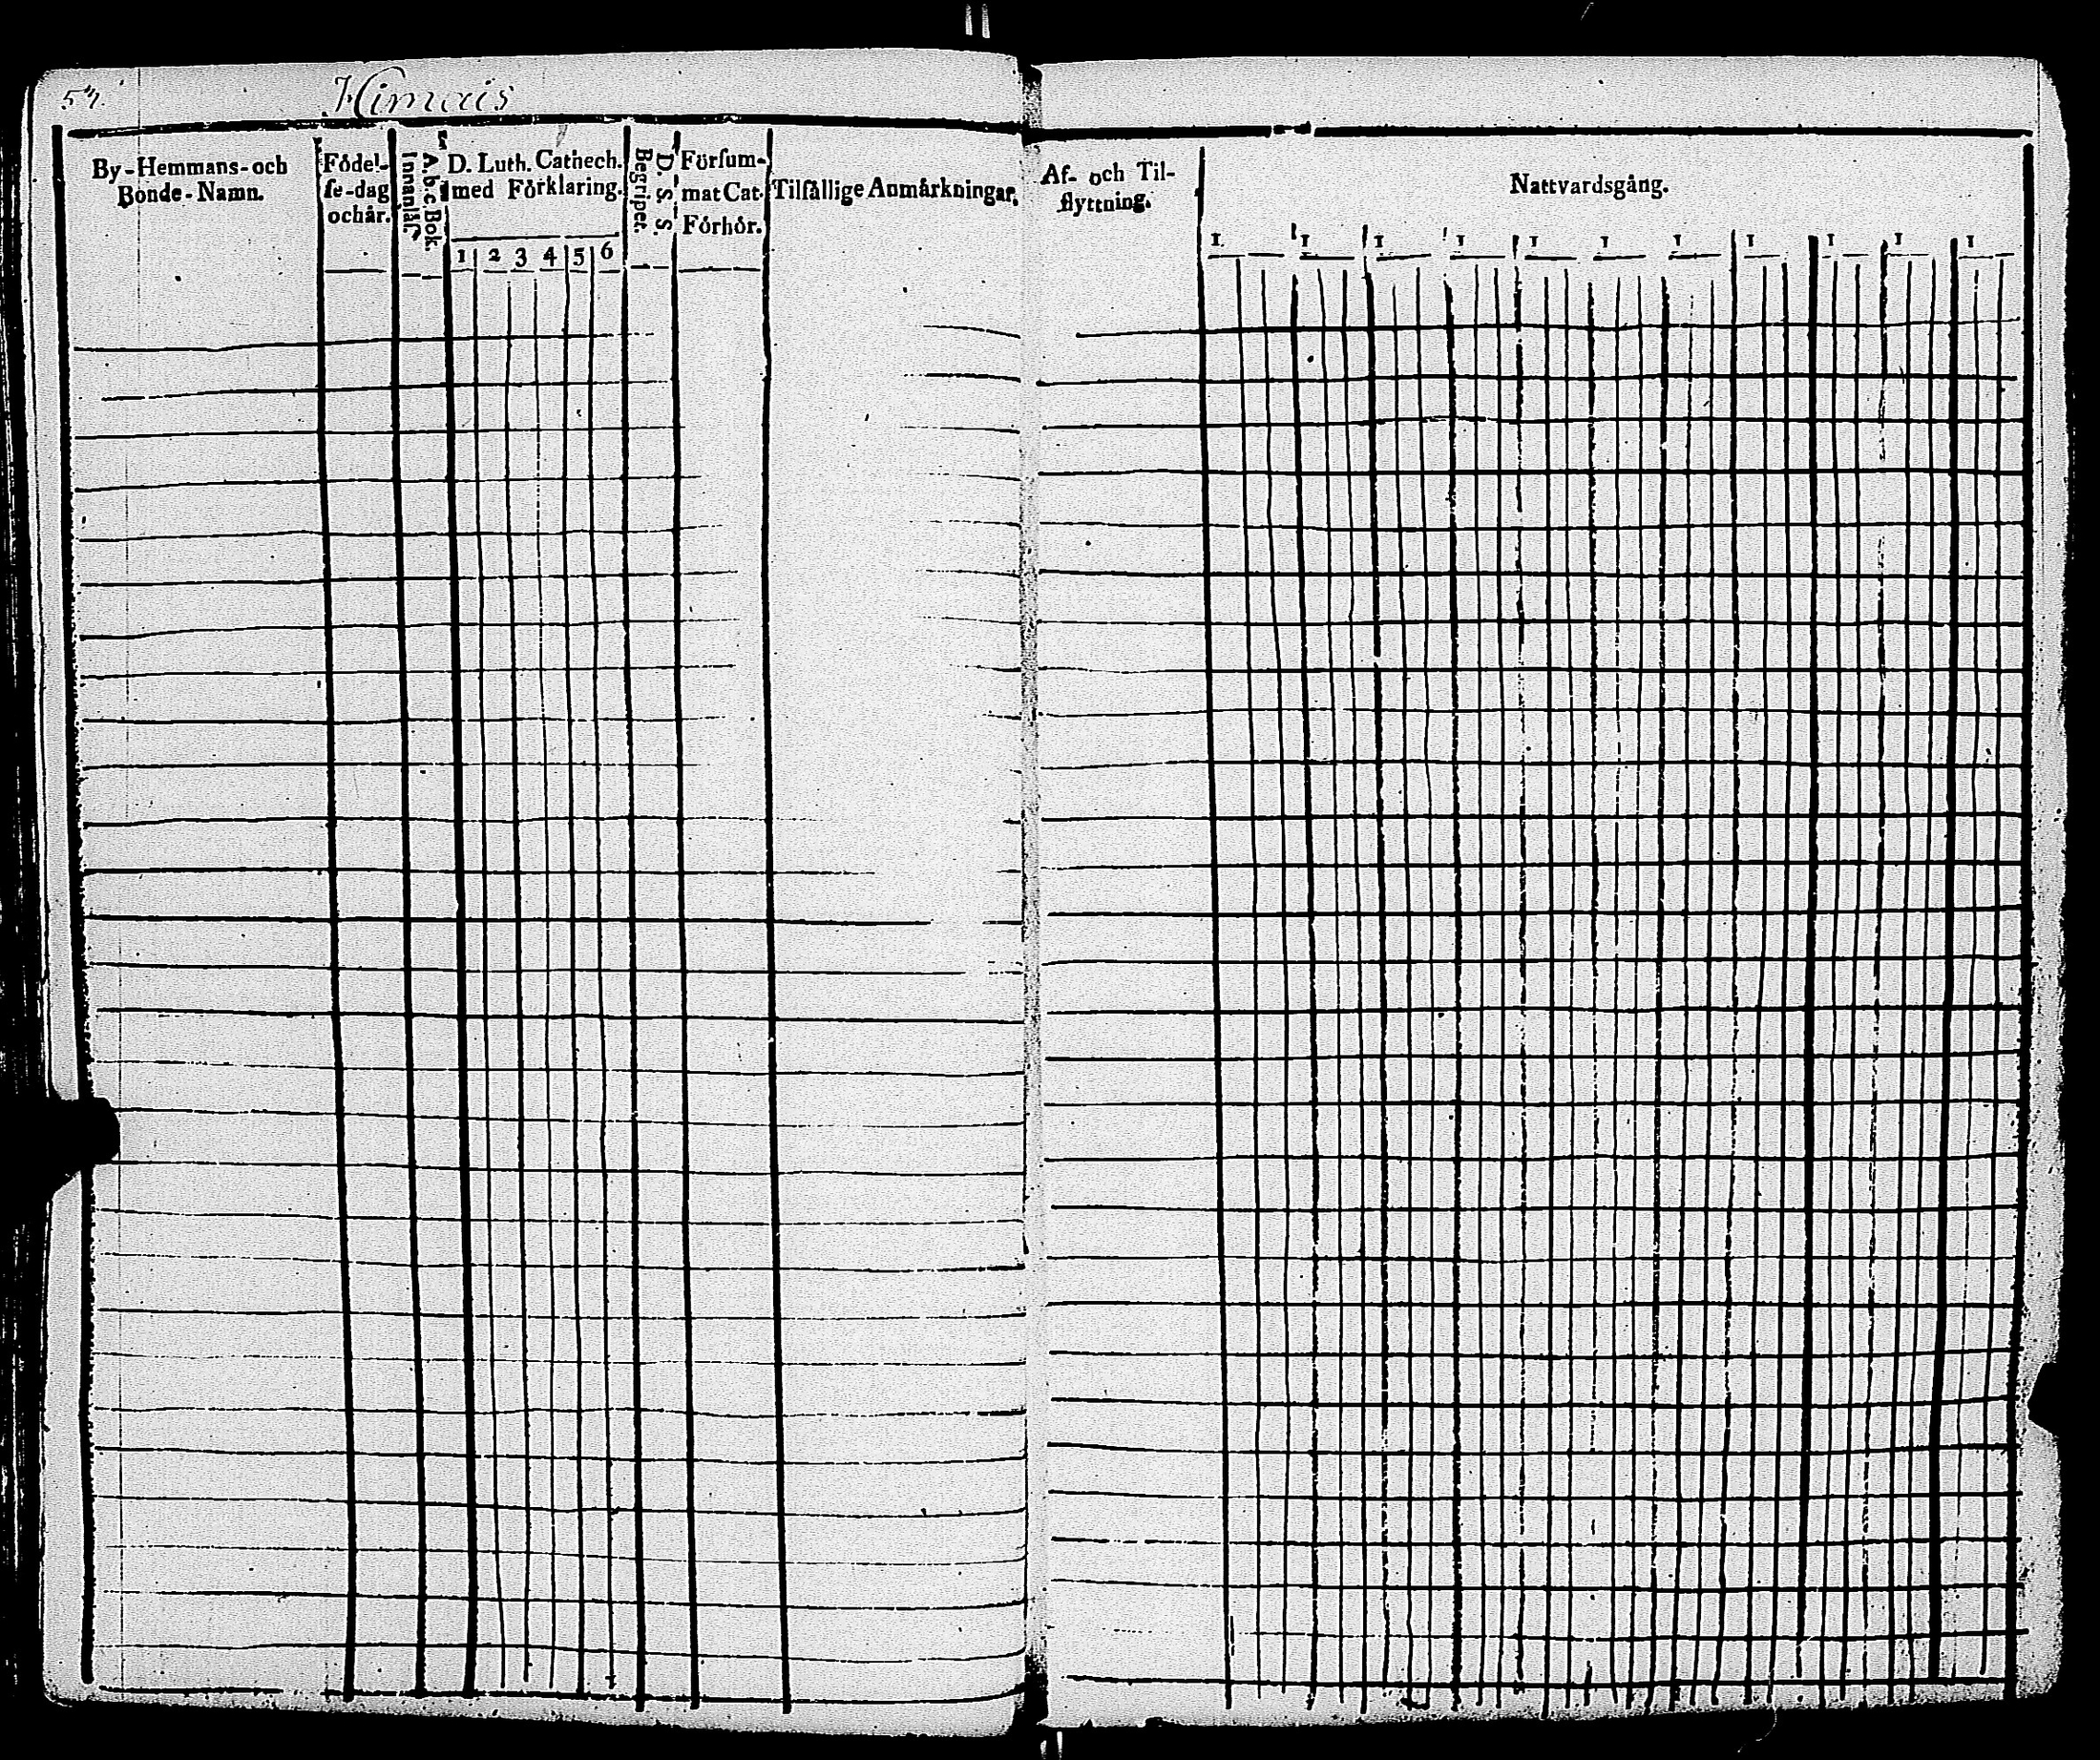 57.
Himois
By-Hemmans-och
Bonde-Namn.
Födel-
se-dag
och år.
A. b. c. Bok.
Innanläs.
D. Luth. Cathech.
med Förklaring.
1 2 3 4 5 6
D. S. S.
Begriper.
Försum-
mat Cat.
Förhör.
Tilfällige Anmärkningar.
Af- och Til-
flyttning.
Nattvardsgång.
1. 1 1 1 1 1 1 1 1 1 1